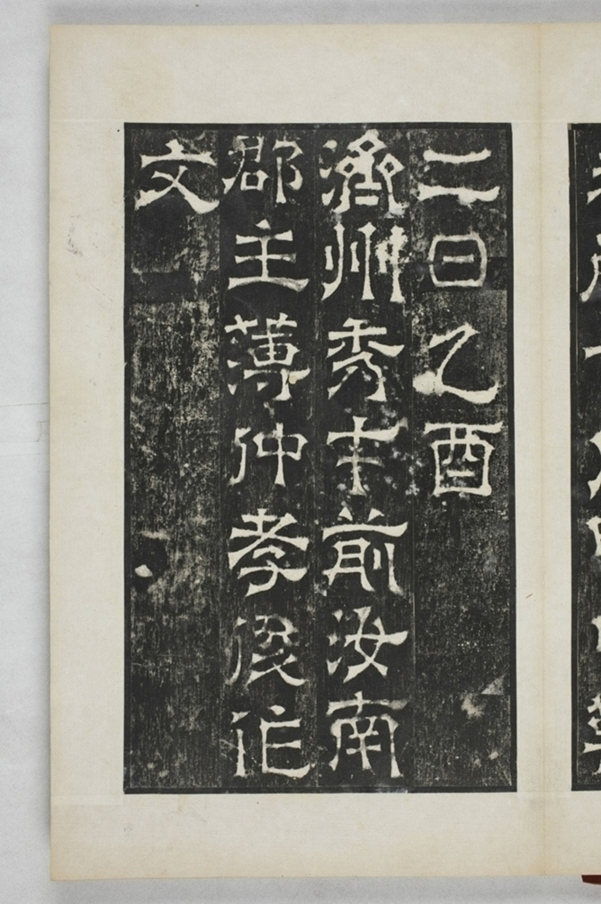 二日乙酉
濟州秀才前汝南
郡主薄仲孝俊作
文